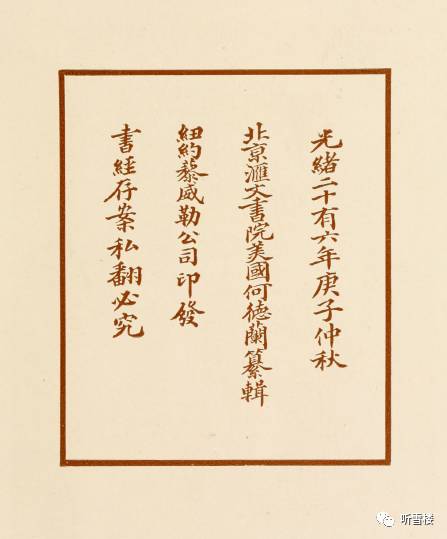 光緒二十有六年庚子仲秋
北京滙文書院美國何德蘭纂輯
紐約黎威勒公司印發
書經存案私翻必究
听雪楼